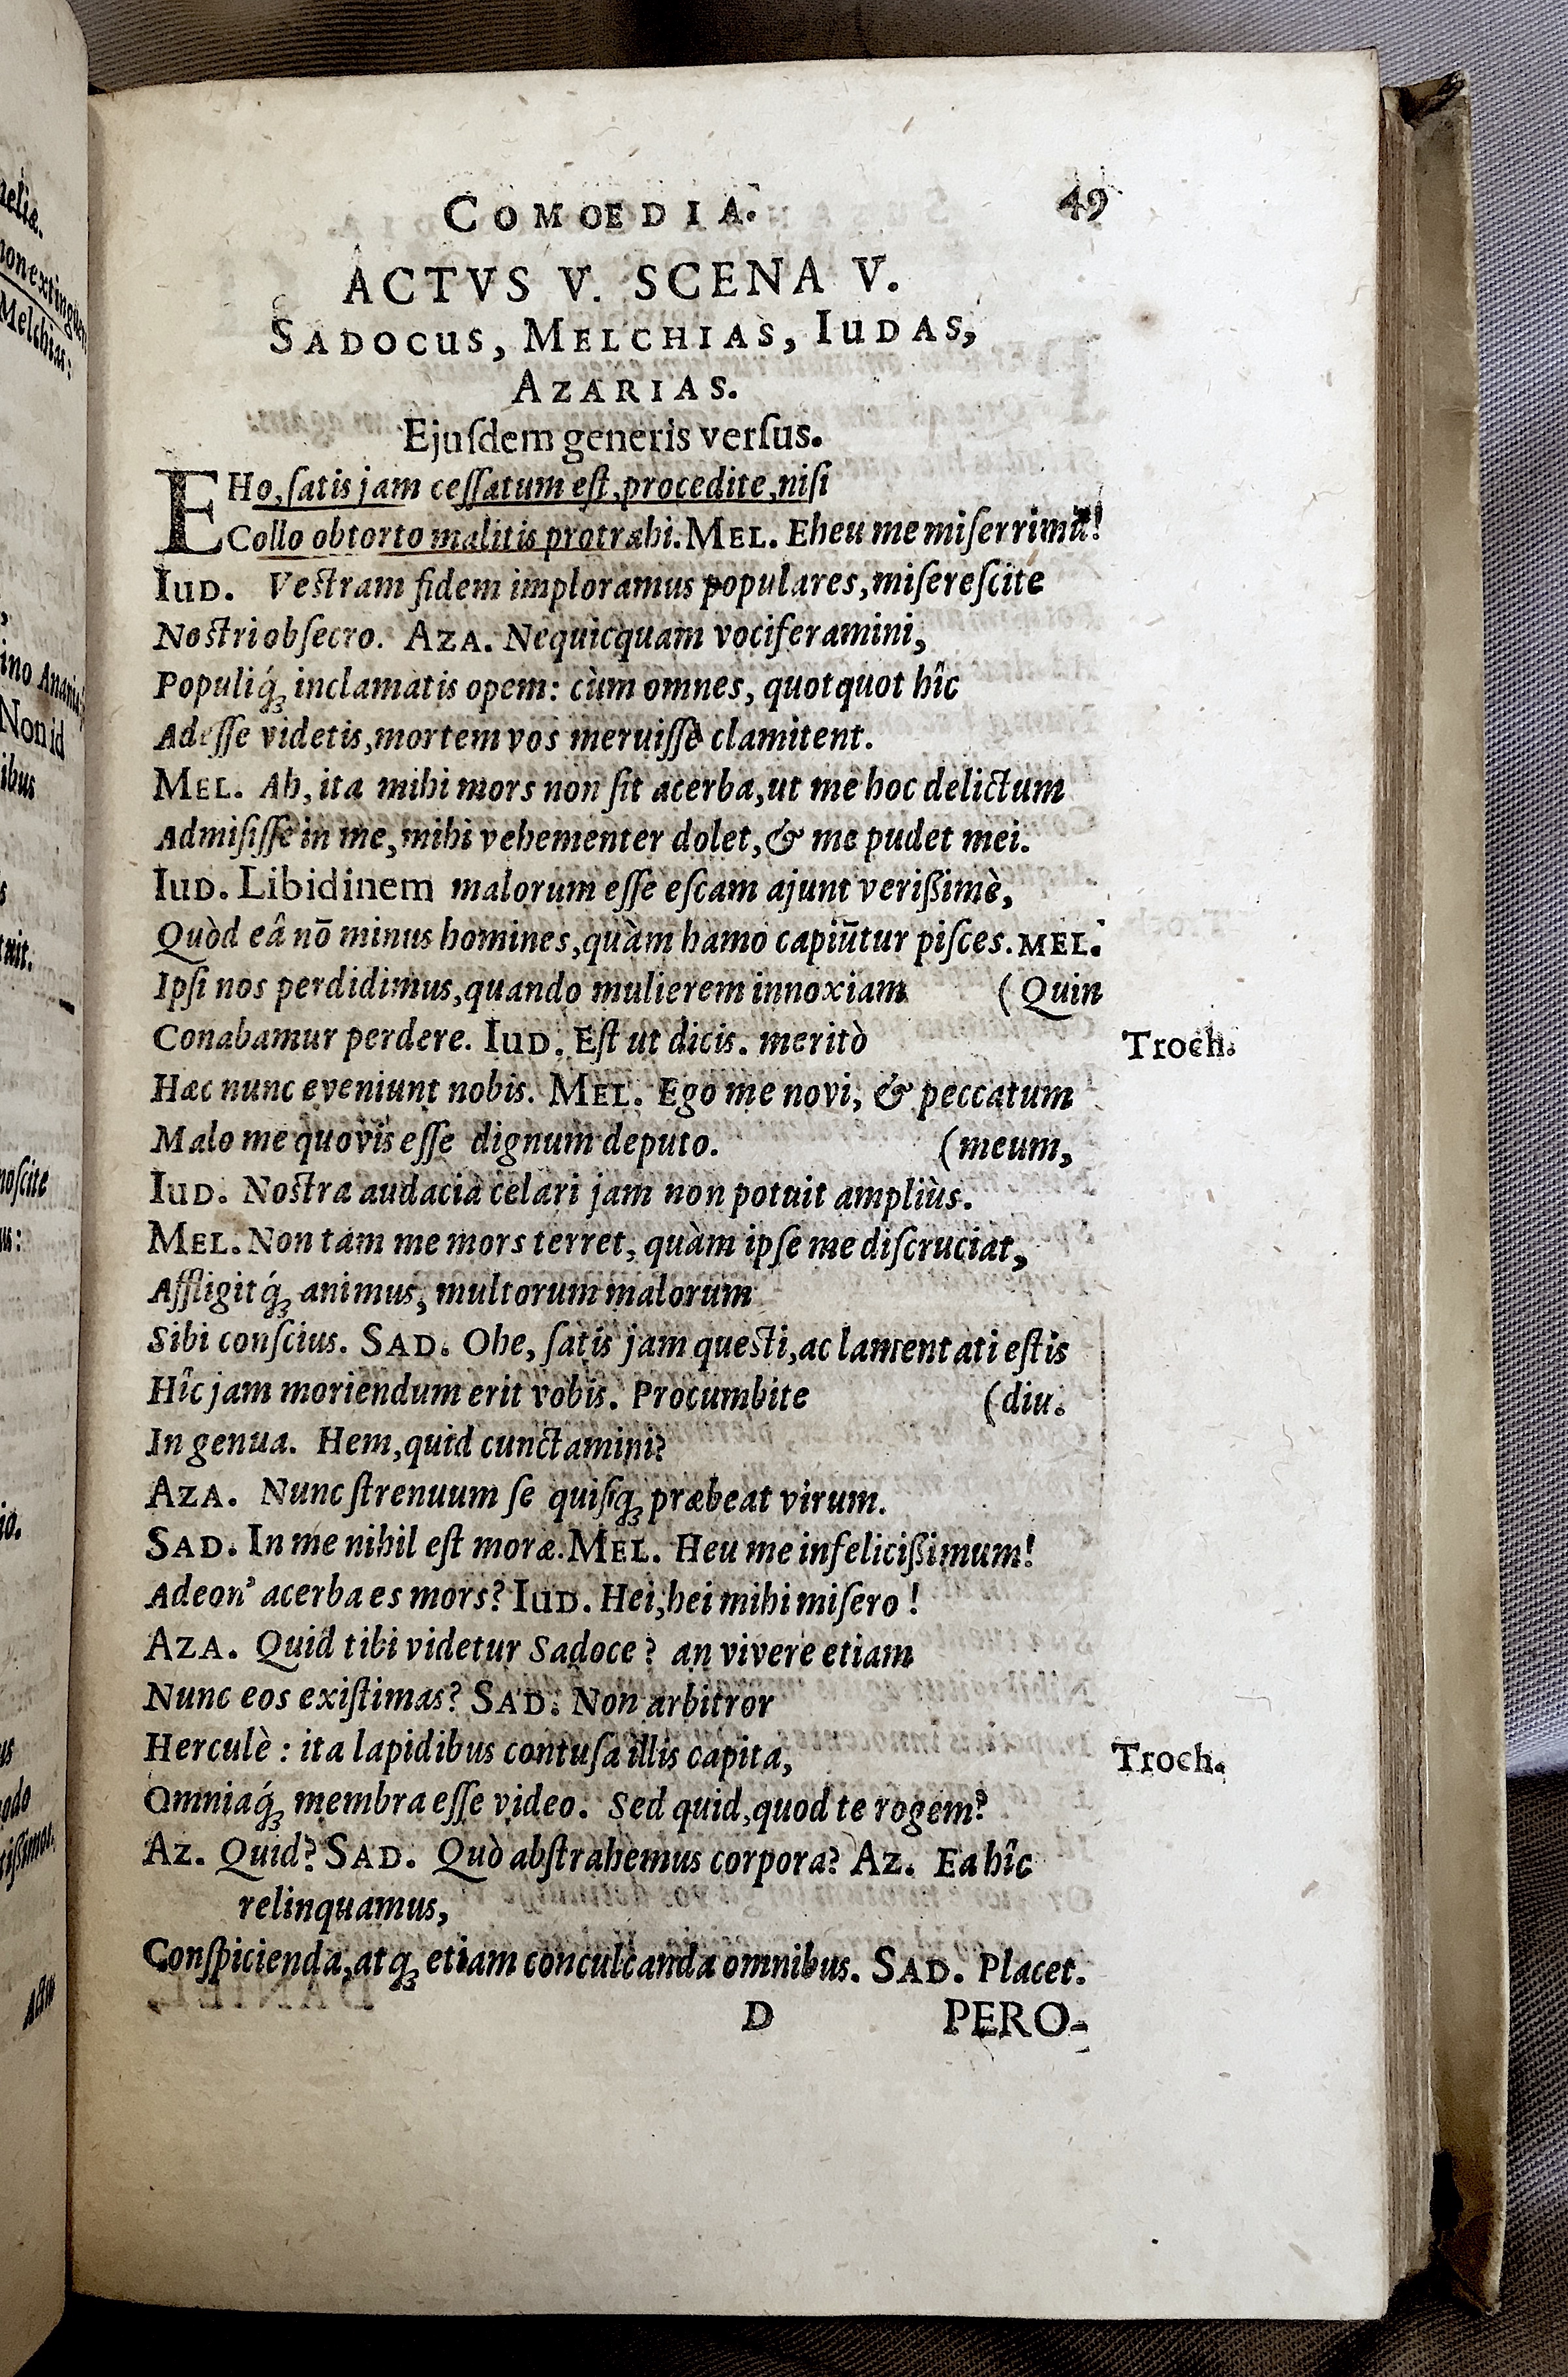 COMOEDIA. 49
ACTVS V. SCENA V.
SADOCUS, MELCHIAS, IUDAS,
AZARIAS.
Ejuſdem generis verſus.
EHo, ſatis jam ceſſatum eſt, procedite, niſi
Collo obtorto malitis protrahi. MEL. Eheu me miſerrimū!
IUD. Veſtram fidem imploramus populares, miſereſcite
Noſtri obſecro. AZA. Nequicquam vociferamini,
Populiq́ꝫ inclamatis opem: cùm omnes, quotquot hîc
Adeſſe videtis, mortem vos meruiſſe clamitent.
MEL. Ah, ita mihi mors non ſit acerba, ut me hoc delictum
Admiſiſſe in me, mihi vehementer dolet, & me pudet mei.
IUD. Libidinem malorum eſſe eſcam ajunt verißimè,
Quòd eâ nō minus homines, quàm hamo capiūtur piſces. MEL.
Ipſi nos perdidimus, quando mulierem innoxiam (Quin
Conabamur perdere. IUD. Eſt ut dicis. meritò Troch.
Hæc nunc eveniunt nobis. MEL. Ego me novi, & peccatum
Malo me quovis eſſe dignum deputo. (meum,
IUD. Noſtra audacia celari jam non potuit ampliùs.
MEL. Non tam me mors terret, quàm ipſe me diſcruciat,
Affligitq́ꝫ animus, multorum malorum
Sibi conſcius. SAD. Ohe, ſatis jam queſti, ac lamentati eſtis
Hîc jam moriendum erit vobis. Procumbite (diu.
In genua. Hem, quid cunctamini?
AZA. Nunc ſtrenuum ſe quiſqꝫ præbeat virum.
SAD. In me nihil eſt moræ. MEL. Heu me infelicißimum!
Adeon' acerba es mors? IUD. Hei, hei mihi miſero!
AZA. Quid tibi videtur Sadoce? an vivere etiam
Nunc eos exiſtimas? SAD. Non arbitror
Herculè: ita lapidibus contuſa illis capita, Troch.
Omniaq́ꝫ membra eſſe video. Sed quid, quod te rogem?
AZ. Quid? SAD. Quò abſtrahemus corpora? AZ. Ea hîc
relinquamus,
Conſpicienda, atqꝫ etiam conculcanda omnibus. SAD. Placet.
D PERO-